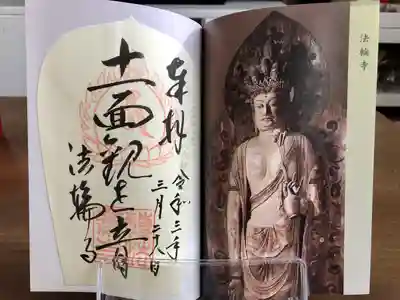 法輪寺
奉拝
令和三年
三月二十八日
十一面観世音
法輪寺